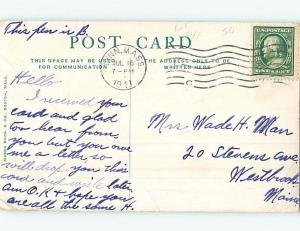 This pen is B.
POST CARD
THIS SPACE MAY BE USED FOR COMMUNICATION
THE ADDRESS ONLY TO BE WRITTEN HERE
MASS.
JUL 16
7-PM
1911
Hello.
I received your
card and glad
to hear from
you but you owe
me a letter, so
will drop you this
card and write later.
am O.K + hope you
are all the same H.
Mrs Wade H. Marr
20 Stevens Ave.
Westbrook
Maine